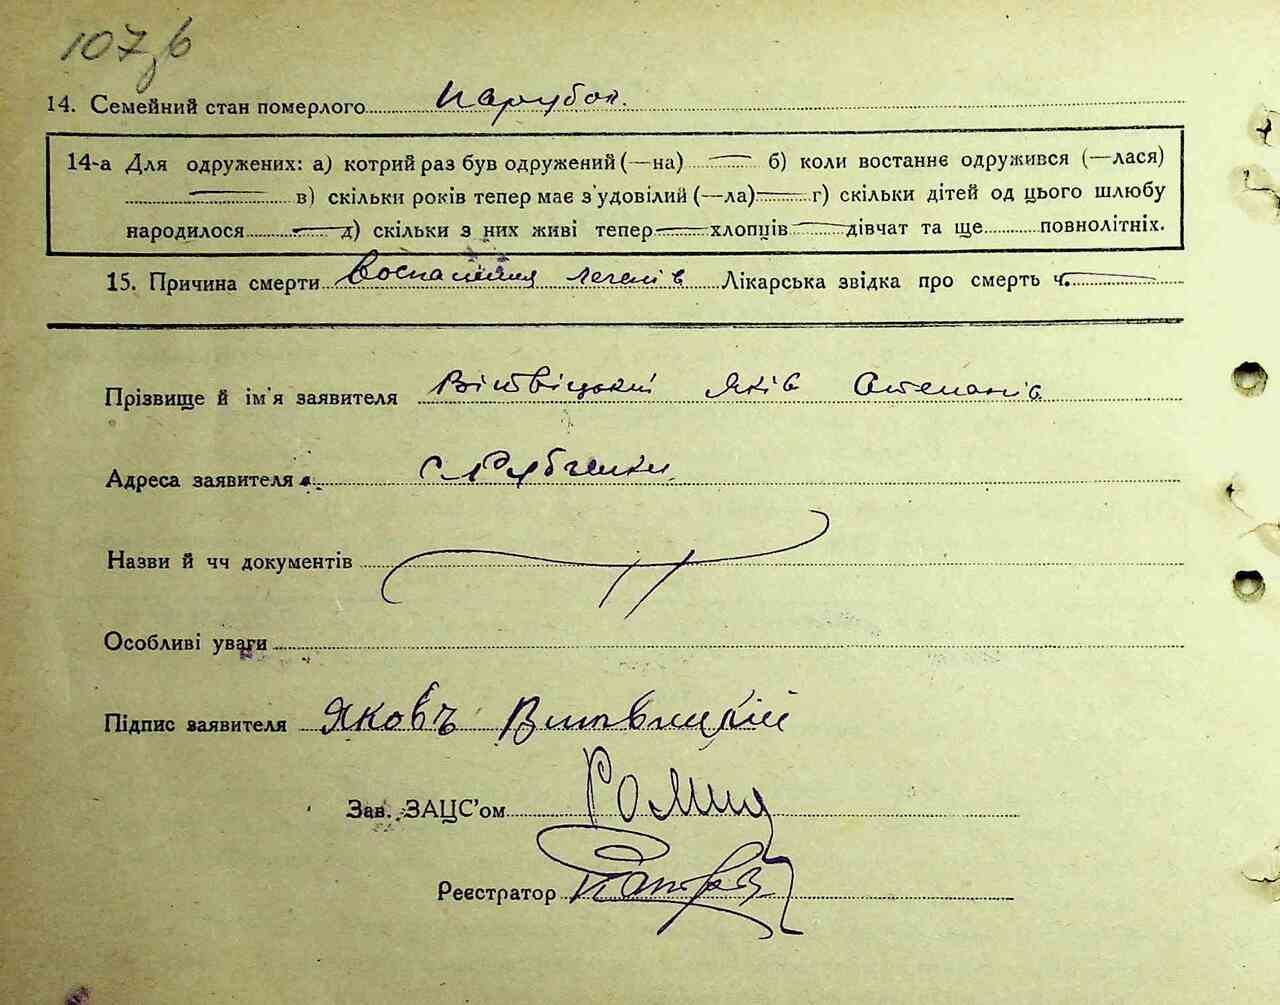 107зв
14. Семейний стан померлого Парубок.
14-а Для одружених: а) котрий раз був одружений (—на) — б) коли востаннє одружився (—лася)
— в) скільки років тепер має з'удовілий (—ла) — г) скільки дітей од цього шлюбу
народилося — д) скільки з них живі тепер — хлопців — дівчат та ще повнолітніх.
15. Причина смерти Воспаління легенів Лікарська звідка про смерть ч. —
Прізвище й ім'я заявителя Вітвіцький Яків Степанів.
Адреса заявителя с
Назви й чч документів
Особливі уваги
Підпис заявителя Яковъ Витвицкій
Зав. ЗАЦС'ом
Реєстратор